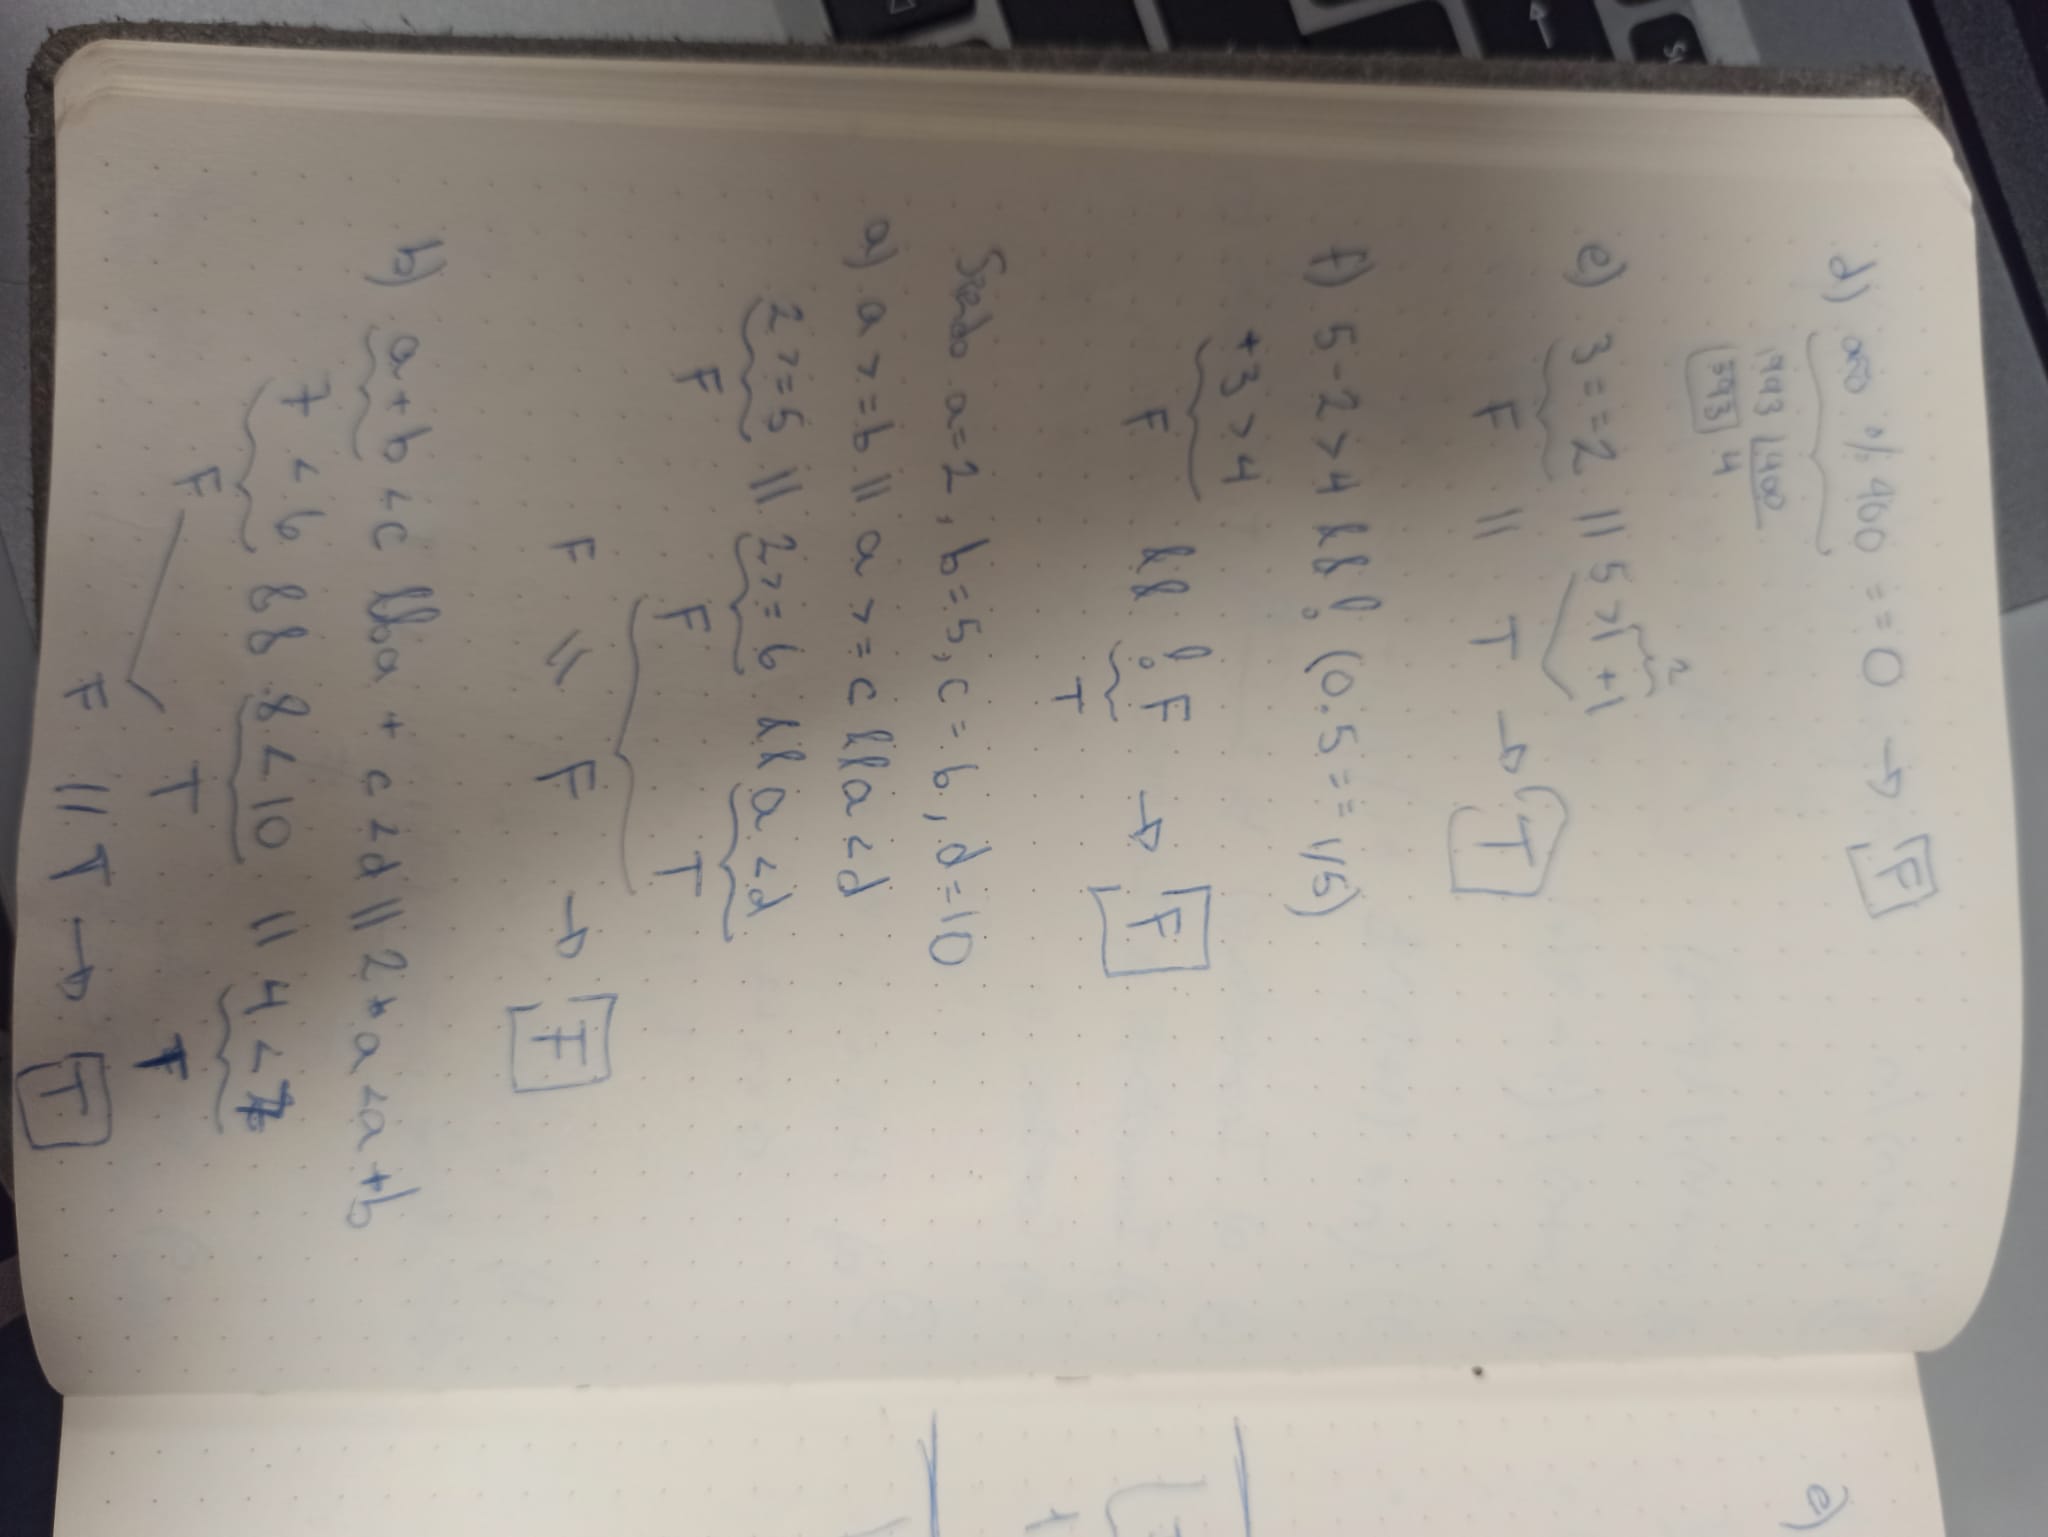 d) año % 400 == 0 → F
1993 400
393 4
e) 3 == 2 || 5 > 1 + 1
2
F || T → T
f) 5 - 2 > 4 && ! (0.5 == 1/5)
+3 > 4 && ! F → F
F T
Siendo a = 2, b = 5, c = 6, d = 10
a) a >= b || a >= c && a < d
2 >= 5 || 2 >= 6 && a < d
F F T
F || F → F
b) a + b < c && a + c < d || 2 * a < a + b
7 < 6 && 8 < 10 || 4 < 7
F T T
F || T → T
e)